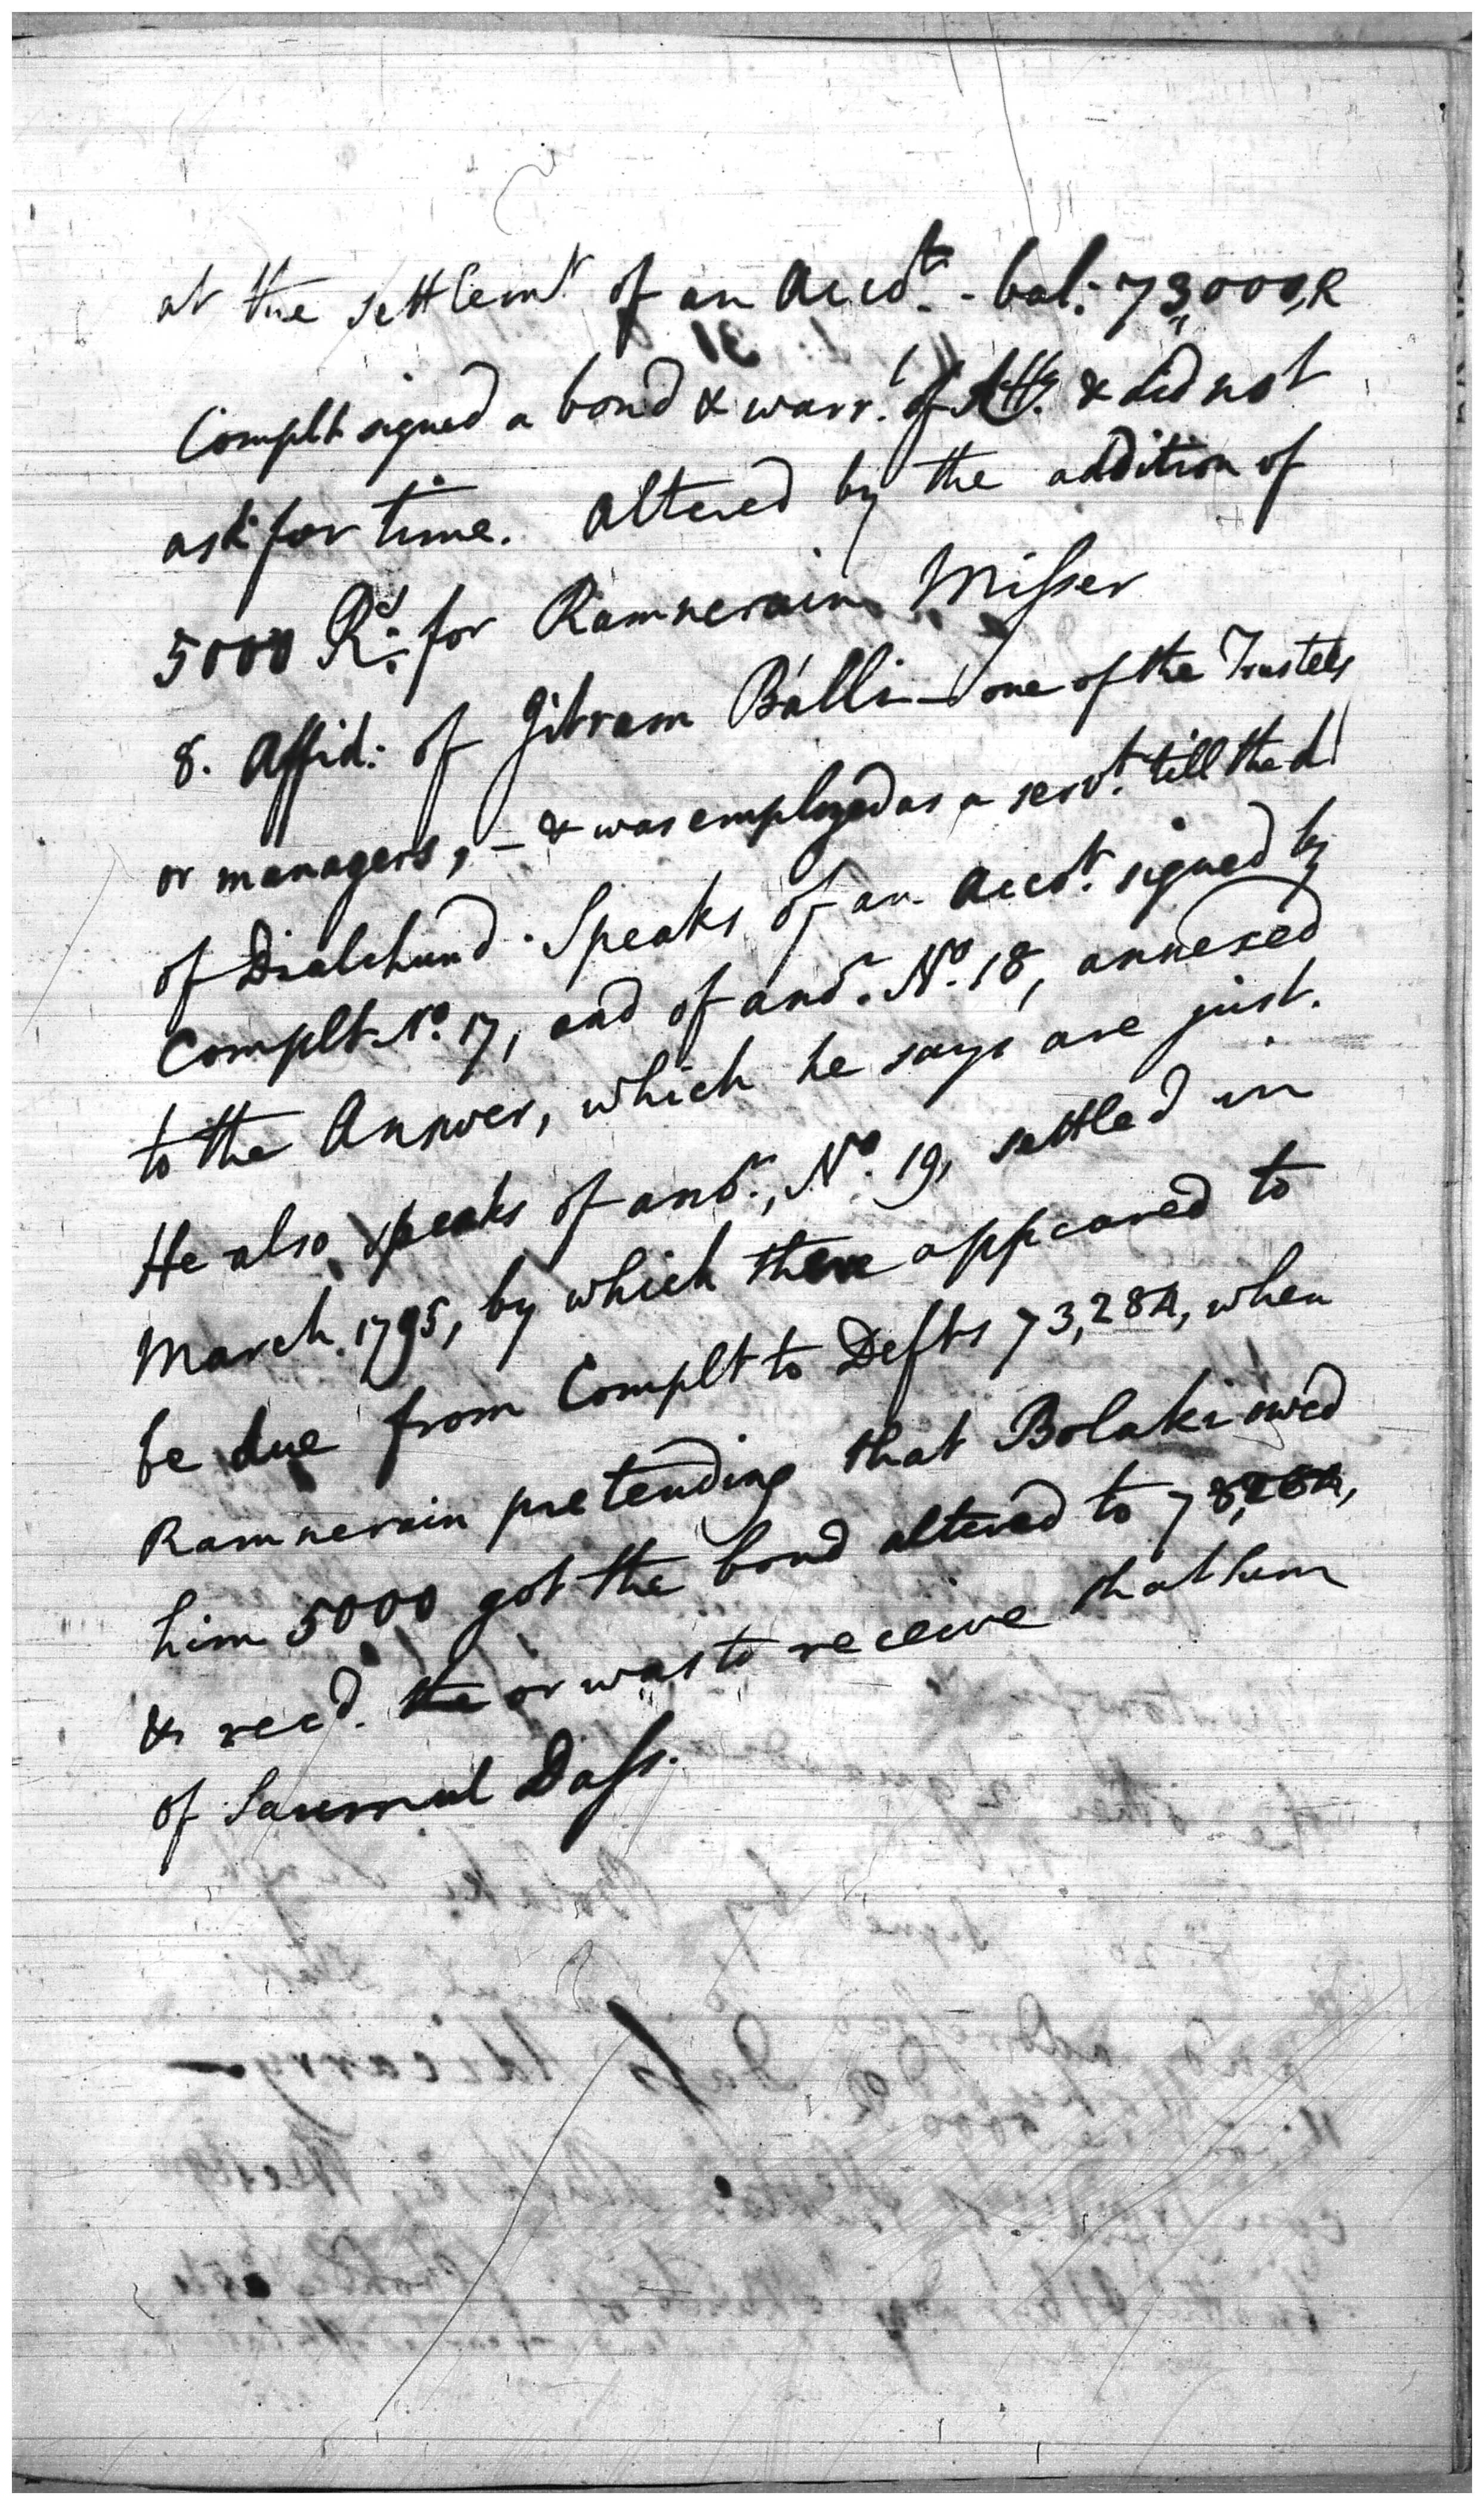 at the settlemt. of an Accot. - bal: 73,000,R
Complt signed a bond & warr.t of Atty. & did not
ask for time. Altered by the addition of
5000 Rs. for Ramnerain Misser
8. Affid: of Jitram Balli - one of the Trustees
or managers, - & was employed as a servt. till the d
of Dialchund. Speaks of an Accot. signed by
Complt No. 17, and of anor. No. 18, annexed
to the Answer, which he says are just.
He also speaks of anor., No. 19, settled in
March. 1795, by which there appeared to
be due from Complt to Defts 73,284, when
Ramnerain pretending that Bolaki owed
him 5000 got the bond altered to 78,284,
& recd. the or was to receive that sum
of Dass.